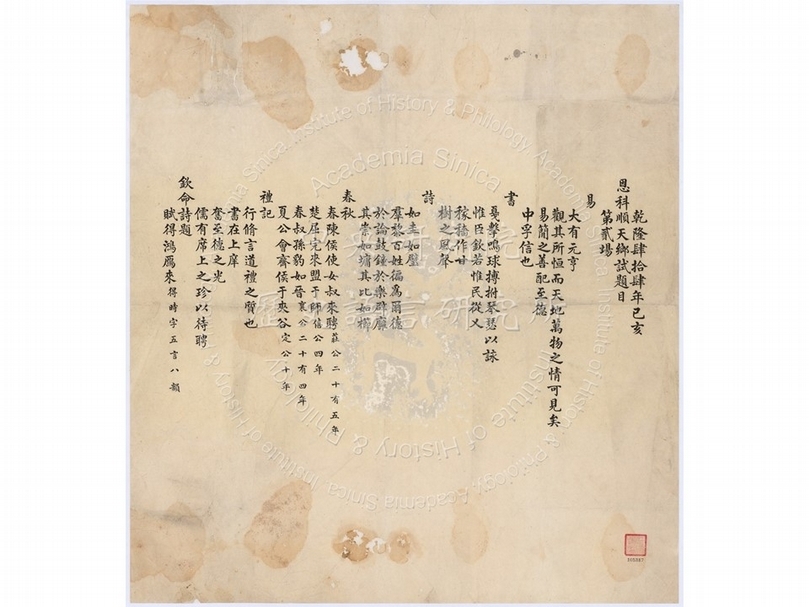 乾隆肆拾肆年己亥
恩科順天鄉試題目
第貳場
易
大有元亨
觀其所恒而天地萬物之情可見矣
易簡之善配至德
中孚信也
書
戛擊鳴球搏拊琴瑟以詠
惟臣欽若惟民從乂
稼穡作甘
樹之風聲
詩
如圭如璧
羣黎百姓徧為爾德
於論鼓鐘於樂辟廱
其崇如墉其比如櫛
春秋
春陳侯使女叔來聘莊公二十有五年
楚屈完來盟于師僖公四年
春叔孫豹如晉襄公二十有四年
夏公會齊侯于夾谷定公十年
禮記
行脩言道禮之質也
書在上庠
奮至德之光
儒有席上之珍以待聘
欽命詩題
賦得鴻鴈來得時字五言八韻
Academia Sinica
Institute of History & Philology